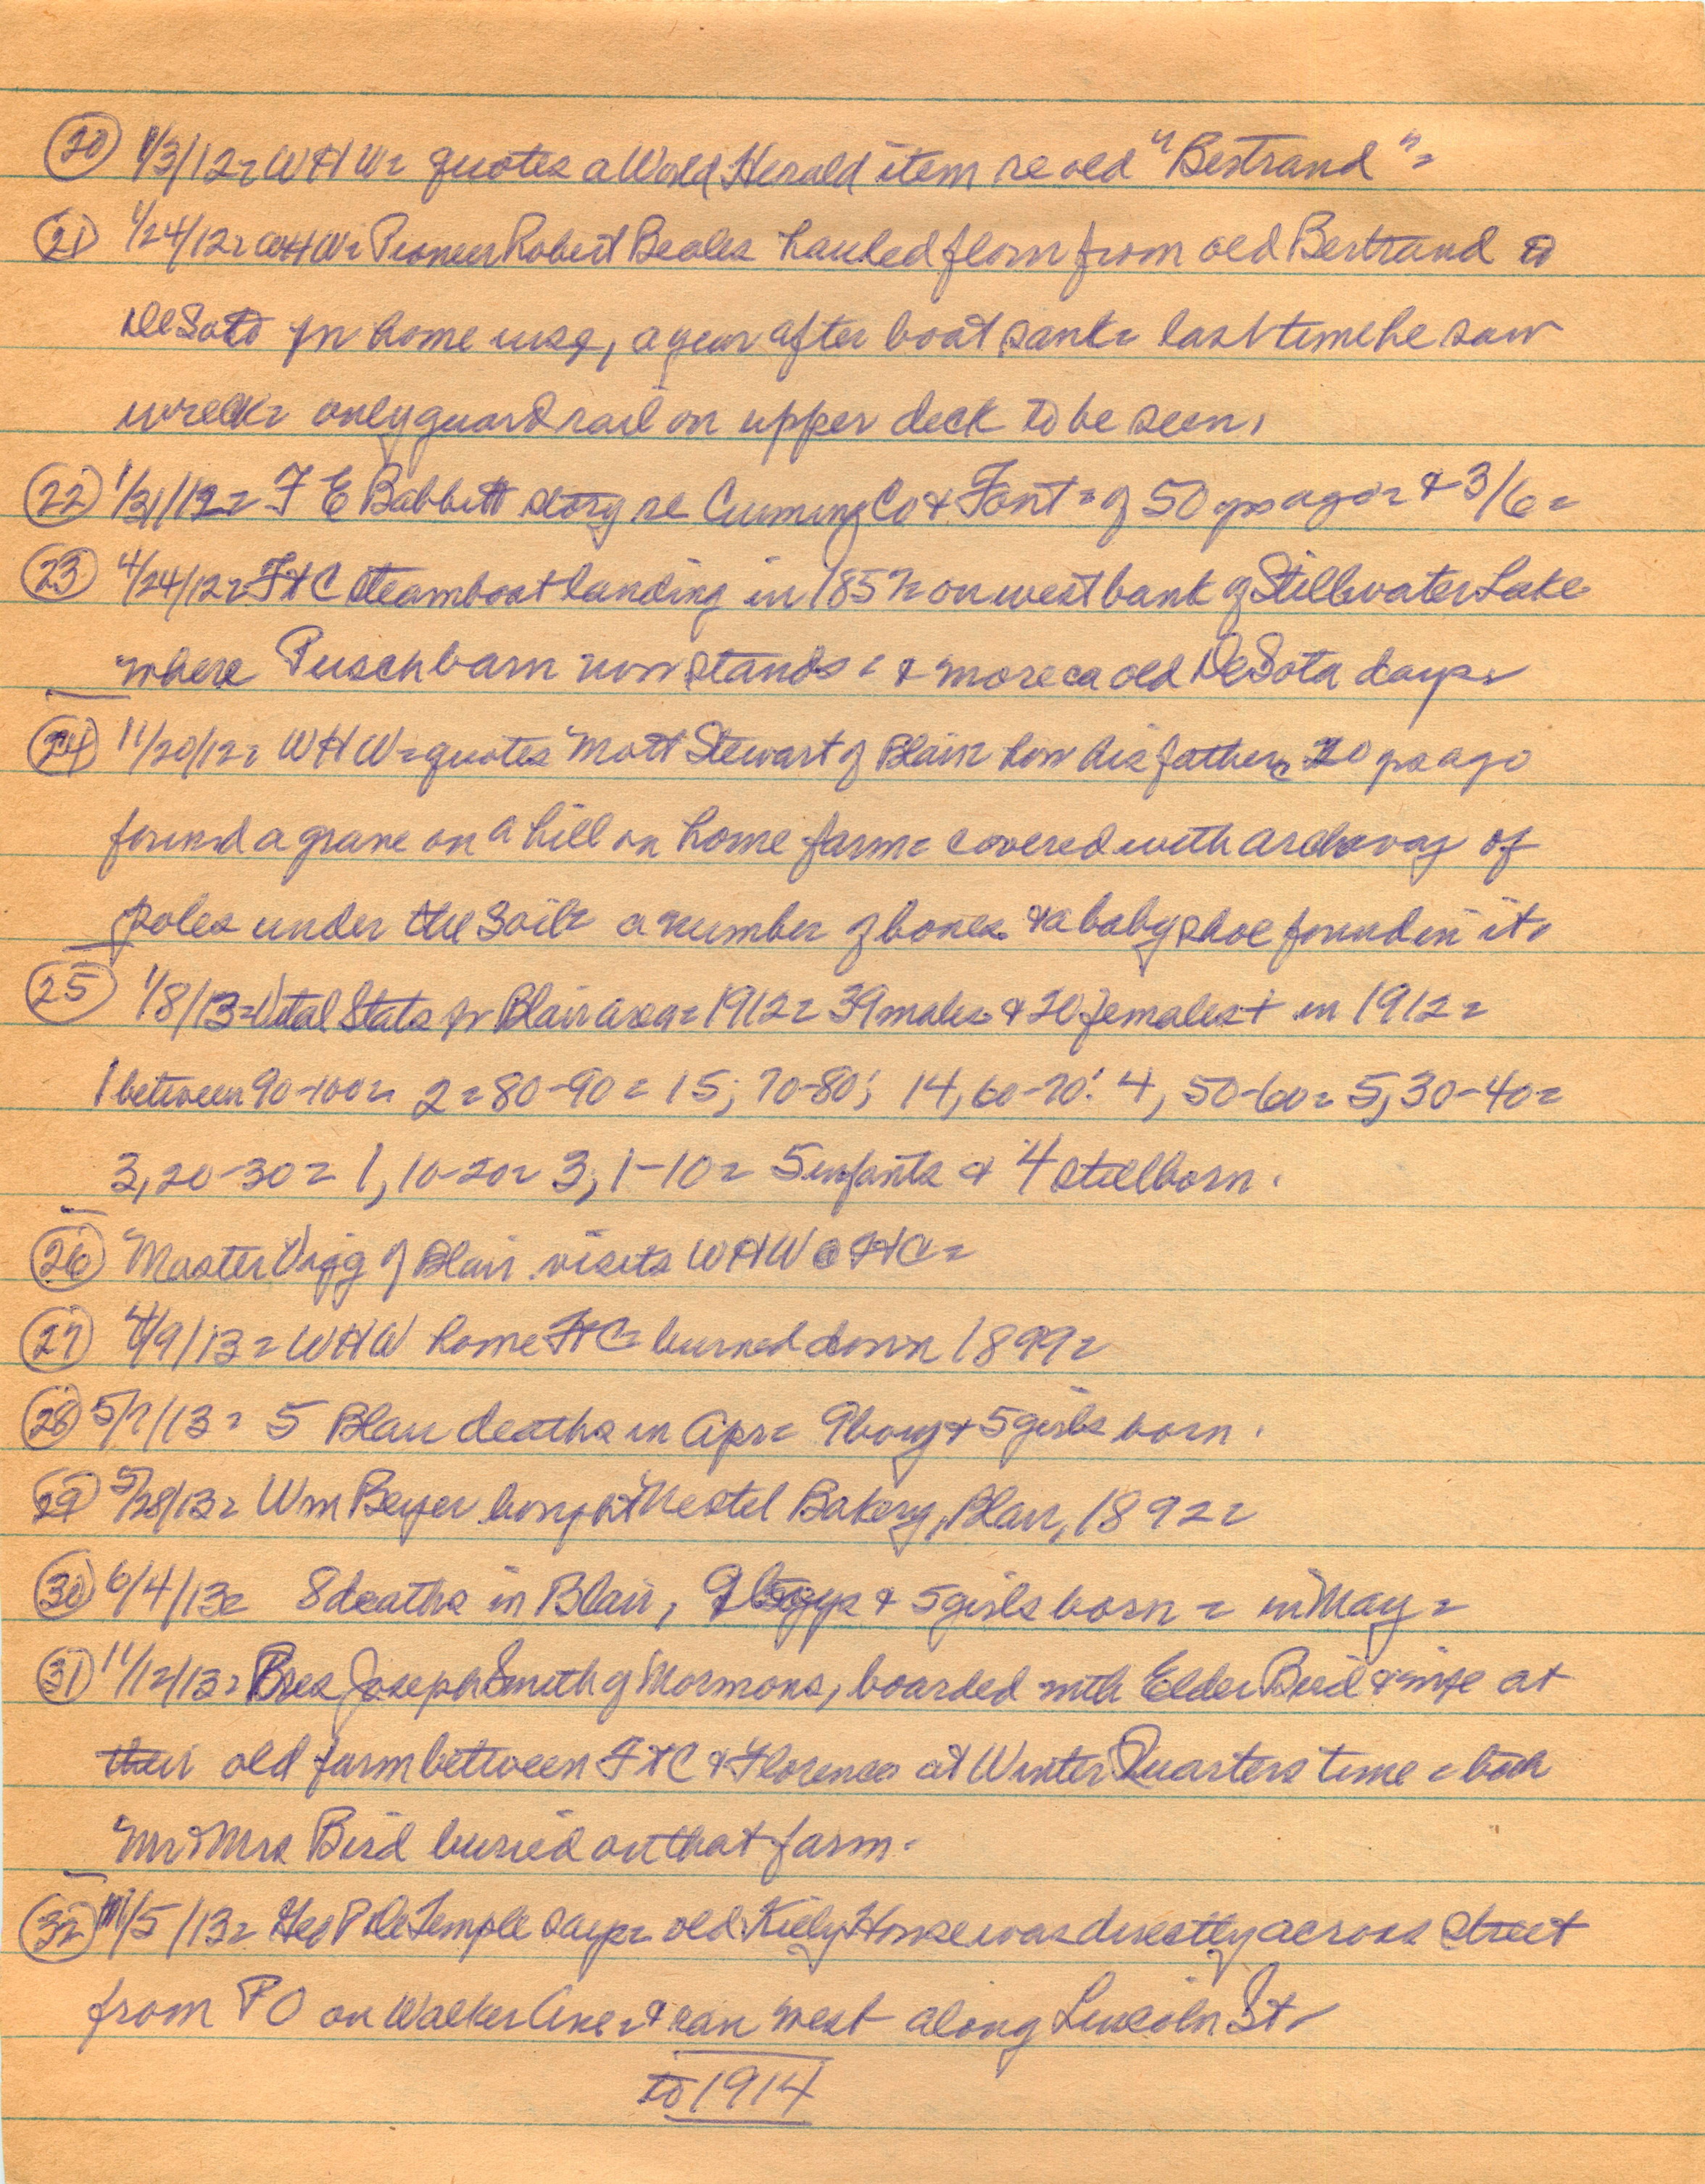 (20) 1/3/12= WHW= quotes a World Herald item re old "Bertrand"=
(21) 1/24/12= WHW= Pioneer Robert Beales hauled flour from old Bertrand to
DeSoto for home use, a year after boat sank= last time he saw
wreck= only guard rail on upper deck to be seen.
(22) 1/31/12= F E Babbitt story re Cuming Co & Font= of 50 yrs ago= & 3/6=
(23) 4/24/12= FtC steamboat landing in 1857= on west bank of Stillwater Lake
where Pusch barn now stands= & more ca old DeSota days=
(24) 11/20/12= WHW= quotes Mott Stewart of Blair= how his father, 20 yrs ago
found a grave on a hill on home farm= covered with archway of
poles under the soil= a number of bones & a baby shoe found in it.
(25) 1/8/13= Vital Stats for Blair area= 1912= 39 males & 20 females + in 1912=
1 between 90-100= 2= 80-90= 15; 70-80; 14, 60-70: 4, 50-60= 5, 30-40=
3, 20-30= 1, 10-20= 3, 1-10= 5 infants & 4 stillborn.
(26) Master Vigg of Blair visits WHW @ FtC=
(27) 4/9/13= WHW home FtC= burned down 1899=
(28) 5/7/13= 5 Blair deaths in Apr= 9 boys & 5 girls born.
(29) 5/28/13= Wm Beyer bought Nestel Bakery, Blair, 1892=
(30) 6/4/13= 8 deaths in Blair, 9 boys & 5 girls born= in May=
(31) 11/12/13= Pres Joseph Smith of Mormons, boarded with Elder Bird & wife at
their old farm between FtC & Florence at Winter Quarters time= both
Mr & Mrs Bird buried on that farm.
(32) /5/13= Geo P DeTemple says= old Kiely House was directly across street
from PO on Walker Ave= & ran west along Lincoln St.
to 1914